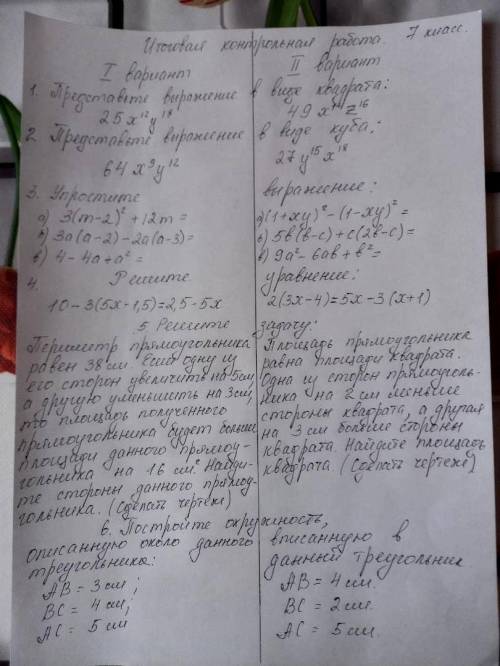 Итоговая контрольная работа. 7 класс.
I вариант
II вариант
1. Представьте выражение в виде квадрата:
25x¹²y¹⁸
49x¹⁴z¹⁶
2. Представьте выражение в виде куба:
64x⁹y¹²
27y¹⁵x¹⁸
3. Упростите выражение:
а) 3(m-2)² + 12m =
б) 3a(a-2) - 2a(a-3) =
в) 4 - 4a + a² =
а) (1+xy)² - (1-xy)² =
б) 5b(b-c) + c(2b-c) =
в) 9a² - 6ab + b² =
4. Решите уравнение:
10 - 3(5x - 1,5) = 2,5 - 5x
2(3x-4) = 5x - 3(x+1)
5. Решите задачу:
Периметр прямоугольника
равен 38 см. Если одну из
его сторон увеличить на 5 см,
а другую уменьшить на 3 см,
то площадь полученного
прямоугольника будет больше
площади данного прямоу-
гольника на 16 см². Найди-
те стороны данного прямоу-
гольника. (Сделать чертеж)
Площадь прямоугольника
равна площади квадрата.
Одна из сторон прямоуголь-
ника на 2 см меньше
стороны квадрата, а другая
на 3 см больше стороны
квадрата. Найдите площадь
квадрата. (Сделать чертеж)
6. Постройте окружность,
описанную около данного
треугольника:
AB = 3 см;
BC = 4 см;
AC = 5 см
вписанную в
данный треугольник
AB = 4 см.
BC = 2 см.
AC = 5 см.